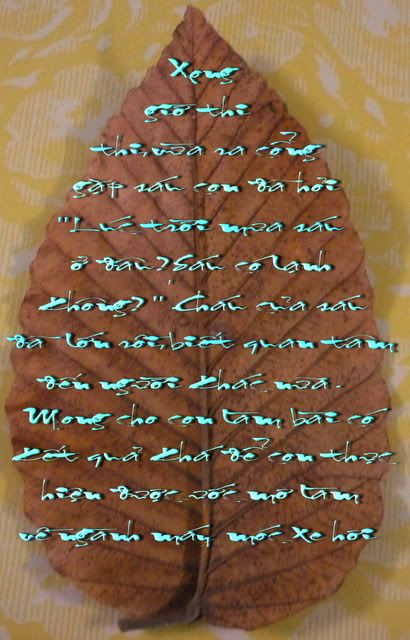 Xong
giờ thi
thi, vừa ra cổng
gặp sáu con đã hỏi
"Lúc trời mưa sáu
ở đâu? Sáu có lạnh
không?" Cháu của sáu
đã lớn rồi, biết quan tâm
đến người khác nữa.
Mong cho con làm bài có
kết quả khá để con thực
hiện được ước mơ làm
về ngành máy móc xe hơi